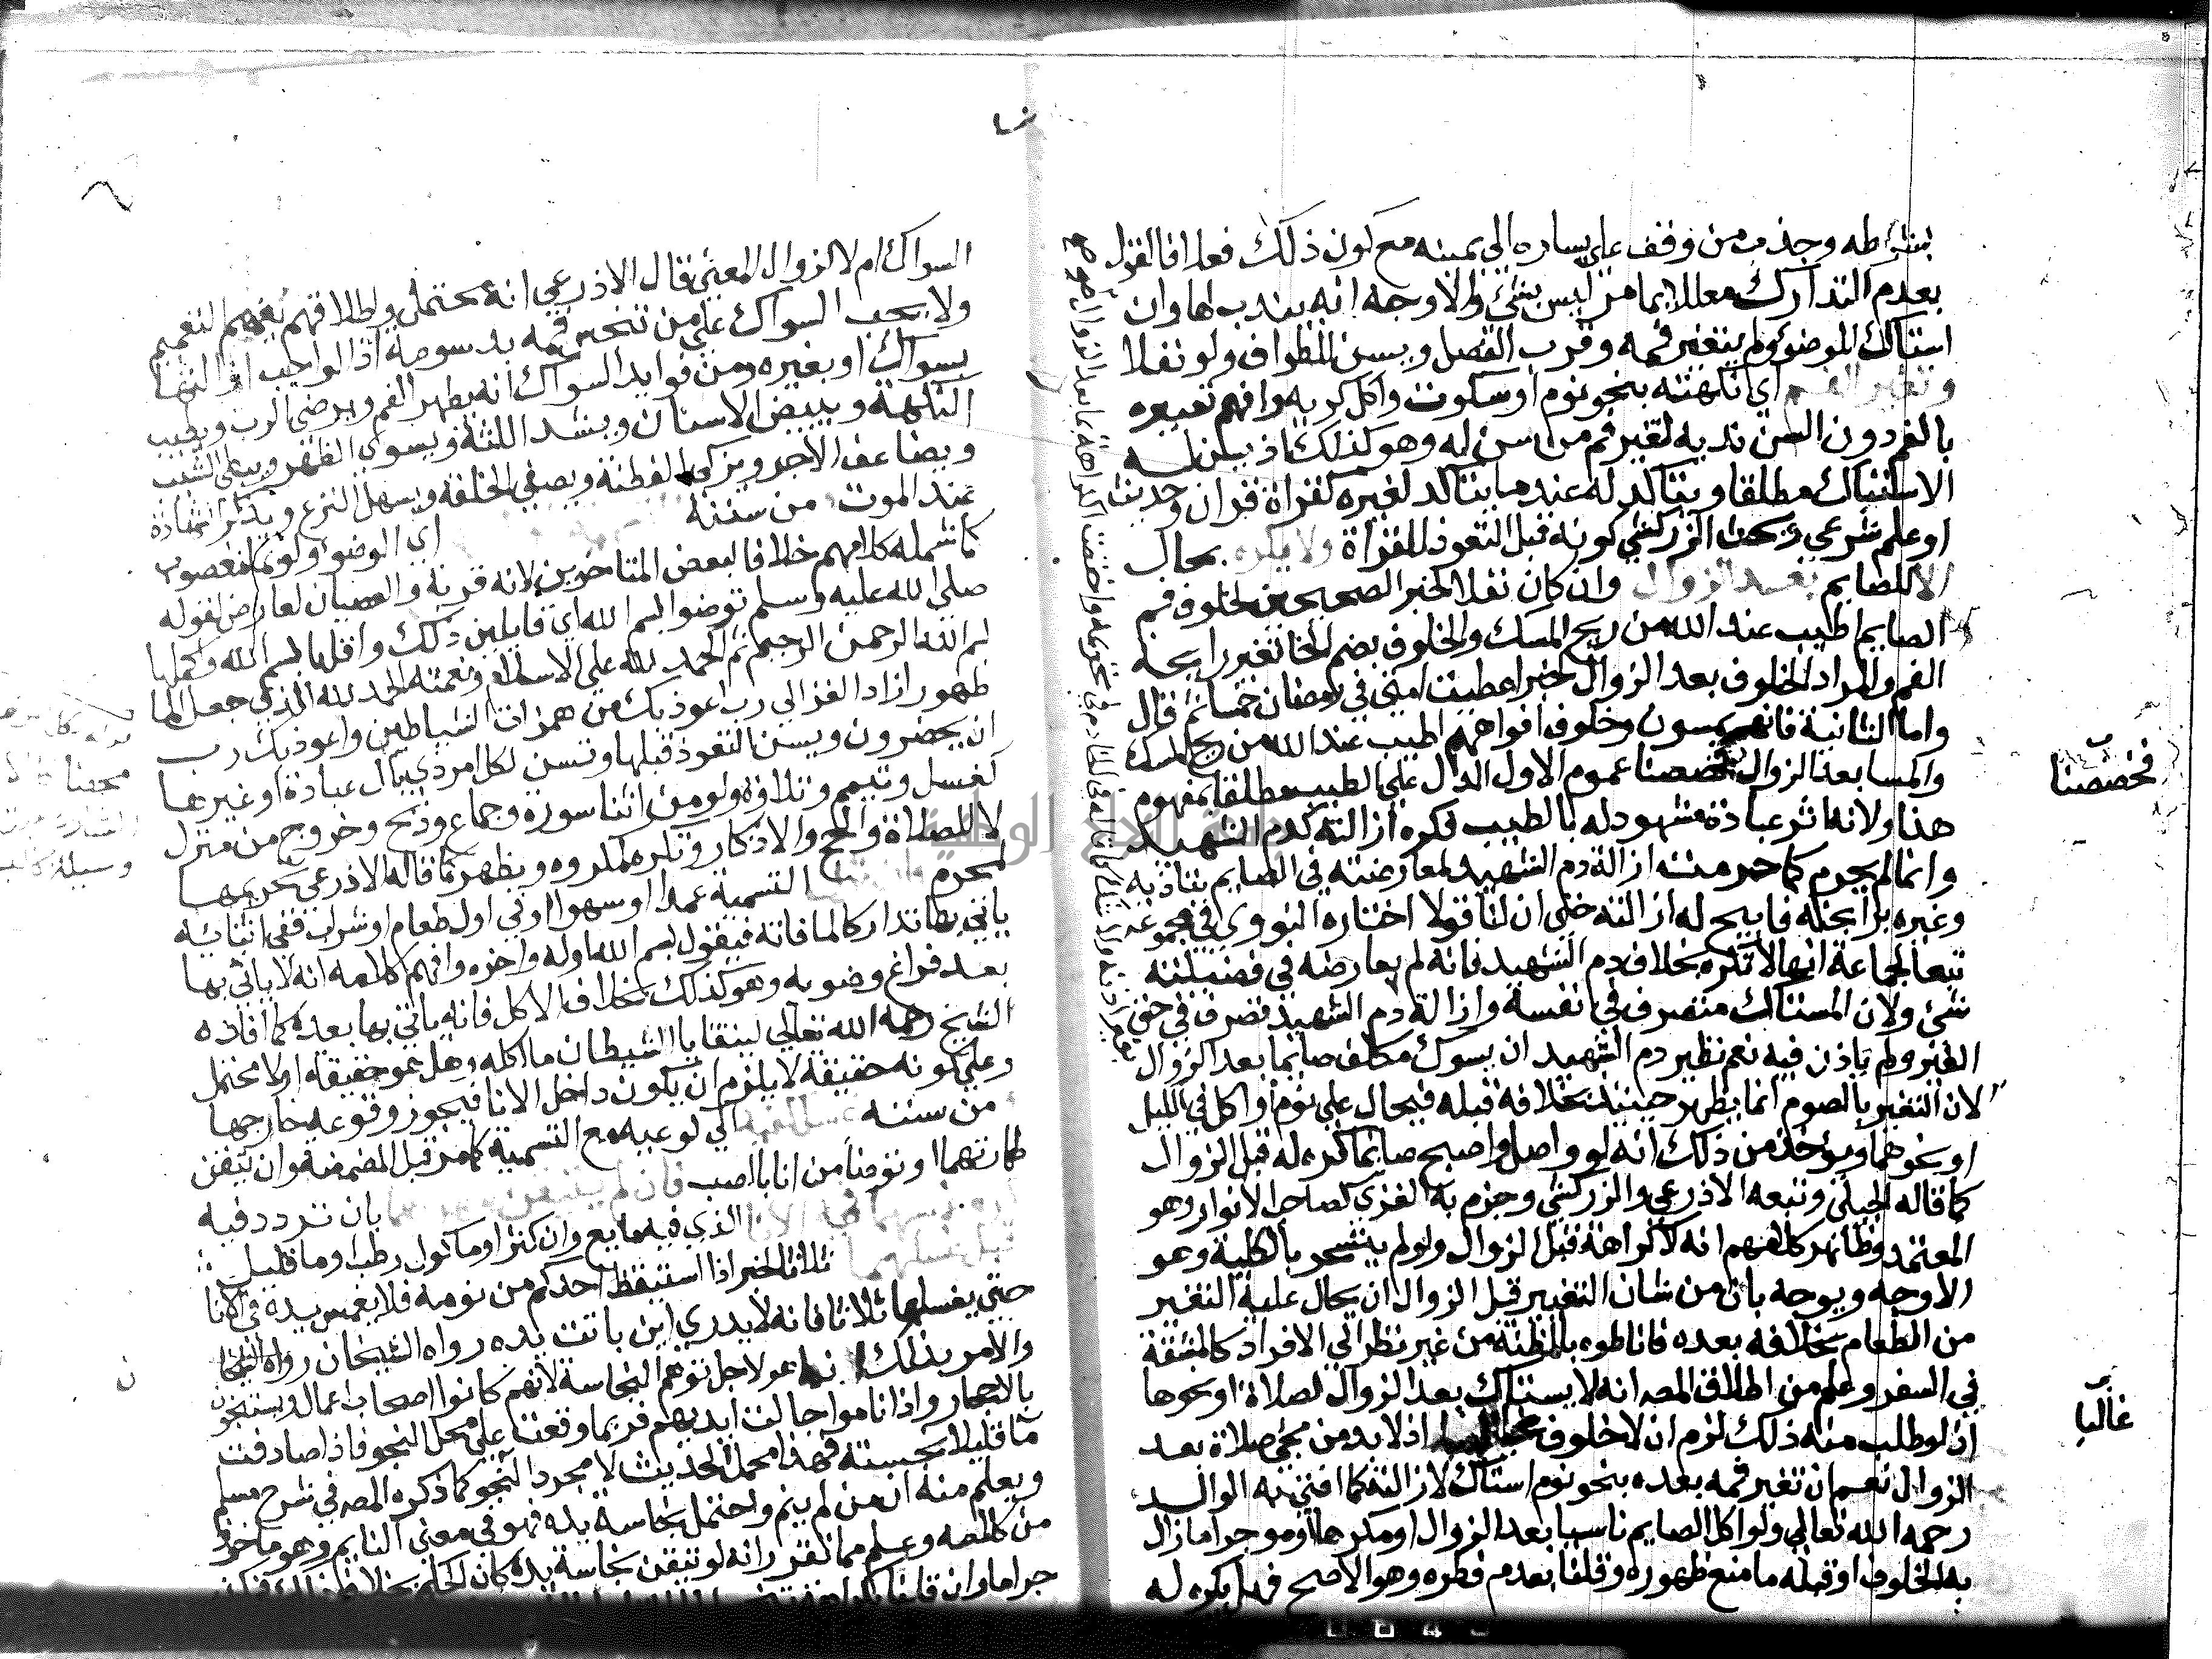 بشرطه وجذب من وقف على يساره الى يمينه مع كون ذلك فعلا فالقول
بعدم التدارك معللا بما مر ليس بشئ والاوجه انه يندب لها وان
استاك للوضوء ولم يتغير فمه وقرب الفصل ويسن للطواف ولو نفلا
وتغير الفم اي نكهته بنحو نوم او سكوت واكل كريه وافهم تعبيره
بالفم دون السن ندبه لتغير فم من سن له وهو كذلك اذ يسن له
الاستياك مطلقا ويتاكد له عند ما يتاكد لغيره كقراة قران وحديث
او علم شرعي وبحث الزركشي كونه قبل التعوذ للقراة ولا يكره بحال
الا للصايم بعد الزوال وان كان نفلا لخبر الصحيحين لخلوف فم
الصايم اطيب عند الله من ريح المسك والخلوف بضم الخا تغير رايحة
الفم والمراد الخلوف بعد الزوال لخبر اعطيت امتي في رمضان خمسا ثم قال
واما الثانية فانهم يمسون وخلوف افواههم اطيب عند الله من ريح المسك
والمسا بعد الزوال فخصصنا عموم الاول الدال على الطيب مطلقا بمفهوم
هذا ولانه اثر عبادة مشهود له بالطيب فكره ازالته كدم الشهيد
وانما لم يحرم كما حرمت ازالة دم الشهيد لمعارضته في الصايم بتاذيه
وغيره برايحته فابيح له ازالته حتى ان لنا قولا اختاره النووي في مجموعه
تبعا لجماعة انها لا تكره بخلاف دم الشهيد فانه لم يعارضه في فضيلته
شئ ولان المستاك متصرف في نفسه وازالة دم الشهيد تصرف في حق
الغير ولم ياذن فيه نعم نظير دم الشهيد ان يسوك مكلف صايما بعد الزوال
لان التغير بالصوم انما يظهر حينئذ بخلافه قبله فيحال على نوم او اكل في الليل
او نحوهما ويوخذ من ذلك انه لو واصل واصبح صايما كره له قبل الزوال
كما قاله الجيلي وتبعه الاذرعي والزركشي وجزم به الغزي كصاحب الانوار وهو
المعتمد وظاهر كلامهم انه لا كراهة قبل الزوال ولو لم يتسحر بالكلية وهو
الاوجه ويوجه بان من شان التغيير قبل الزوال ان يحال علية التغير
من الطعام بخلافه بعده فاناطوه بالمظنة من غير نظر الى الافراد كالمشقة
في السفر وعلم من اطلاق المصه انه لا يستاك بعد الزوال لصلاة او نحوها
اذ لو طلب منه ذلك لزم ان لا خلوف غالبا اذ لا بد من مجئ صلاة بعد
الزوال نعم ان تغير فمه بعده بنحو نوم استاك لازالته كما افتى به الوالد
رحمه الله تعالى ولو اكل الصايم ناسيا بعد الزوال او مكرها او موجرا ما زال
به الخلوف او قبله ما منع ظهوره وقلنا بعدم فطره وهو الاصح فهل يكره له
فخصصنا
غالبا
السواك ام لا لزوال المعنى قال الاذرعي انه محتمل واطلاقهم يفهم التعميم
ولا يجب السواك على من تنجس فمه بدسومة اذ الواجب ازالتها
بسواك او بغيره ومن فوايد السواك انه يطهر الفم ويرضي الرب ويطيب
النكهة ويبيض الاسنان ويشد اللثة ويسوي الظهر ويبطي الشيب
ويضاعف الاجر ويزكي الفطنة ويصفي الخلقة ويسهل النزع ويذكر الشهادة
عند الموت من سننه اي الوضوء ولو بماء مغصوب
كما شمله كلامهم خلافا لبعض المتاخرين لانه قربة والعصيان لعارض لقوله
صلى الله عليه وسلم توضوا بسم الله اي قايلين ذلك واقلها بسم الله واكملها
بسم الله الرحمن الرحيم ثم الحمد لله على الاسلام ونعمته الحمد لله الذي جعل الما
طهورا زاد الغزالي رب اعوذ بك من همزات الشياطين واعوذ بك رب
ان يحضرون ويسن التعوذ قبلها وتسن لكل امر ذي بال عبادة او غيرها
كغسل وتيمم وتلاوة ولو من اثنا سورة وجماع وذبح وخروج من منزل
لا للصلاة والحج والاذكار وتكره لمكروه ويظهر كما قاله الاذرعي تحريمها
لمحرم التسمية عمدا او سهوا او في اول طعام او شراب ففي اثنايه
ياتي بها تداركا لما فاته فيقول بسم الله اوله واخره وافهم كلامه انه لا ياتي بها
بعد فراغ وضويه وهو كذلك بخلاف الاكل فانه ياتي بها بعده كما افاده
الشيخ رحمه الله تعالى ليتقايا الشيطان ما اكله وهل هو حقيقة او لا محتمل
وعلى كونه حقيقة لا يلزم ان يكون داخل الانا فيجوز وقوعه خارجها
من سننه غسل كفيه الى كوعيه مع التسمية كما مر قبل المضمضة وان تيقن
طهارتهما او توضا من انا بالصب فان لم يتيقن بان تردد فيه
الذي فيه مايع وان كثر او ماكول رطب او ما قليل
ثلاثا لخبر اذا استيقظ احدكم من نومه فلا يغمس يده في الانا
حتى يغسلها ثلاثا فانه لا يدري اين باتت يده رواه الشيخان
والامر بذلك انما هو لاجل توهم النجاسة لانهم كانوا اصحاب اعمال ويستنجون
بالاحجار واذا ناموا جالت ايديهم فربما وقعت على محل النجو فاذا صادفت
ما قليلا نجسته فهذا محمل الحديث لا مجرد النجو كما ذكره المصه في شرح مسلم
ويعلم منه ان من لم ينم واحتمل نجاسة يده فهو في معنى النايم وهو ماخوذ
من كلامه وعلم مما تقرر انه لو تيقن نجاسة يده كان الحكم